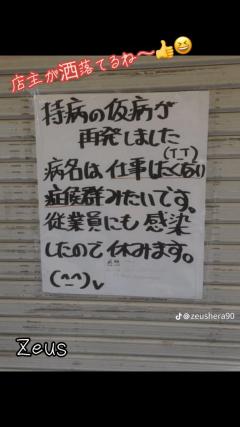 店主が洒落てるね〜👍😆
持病の仮病が
再発しました
(T_T)
病名は仕事したくない
症候群みたいです。
従業員にも感染
したので休みます。
(^^)v
@zeushera90
Zeus